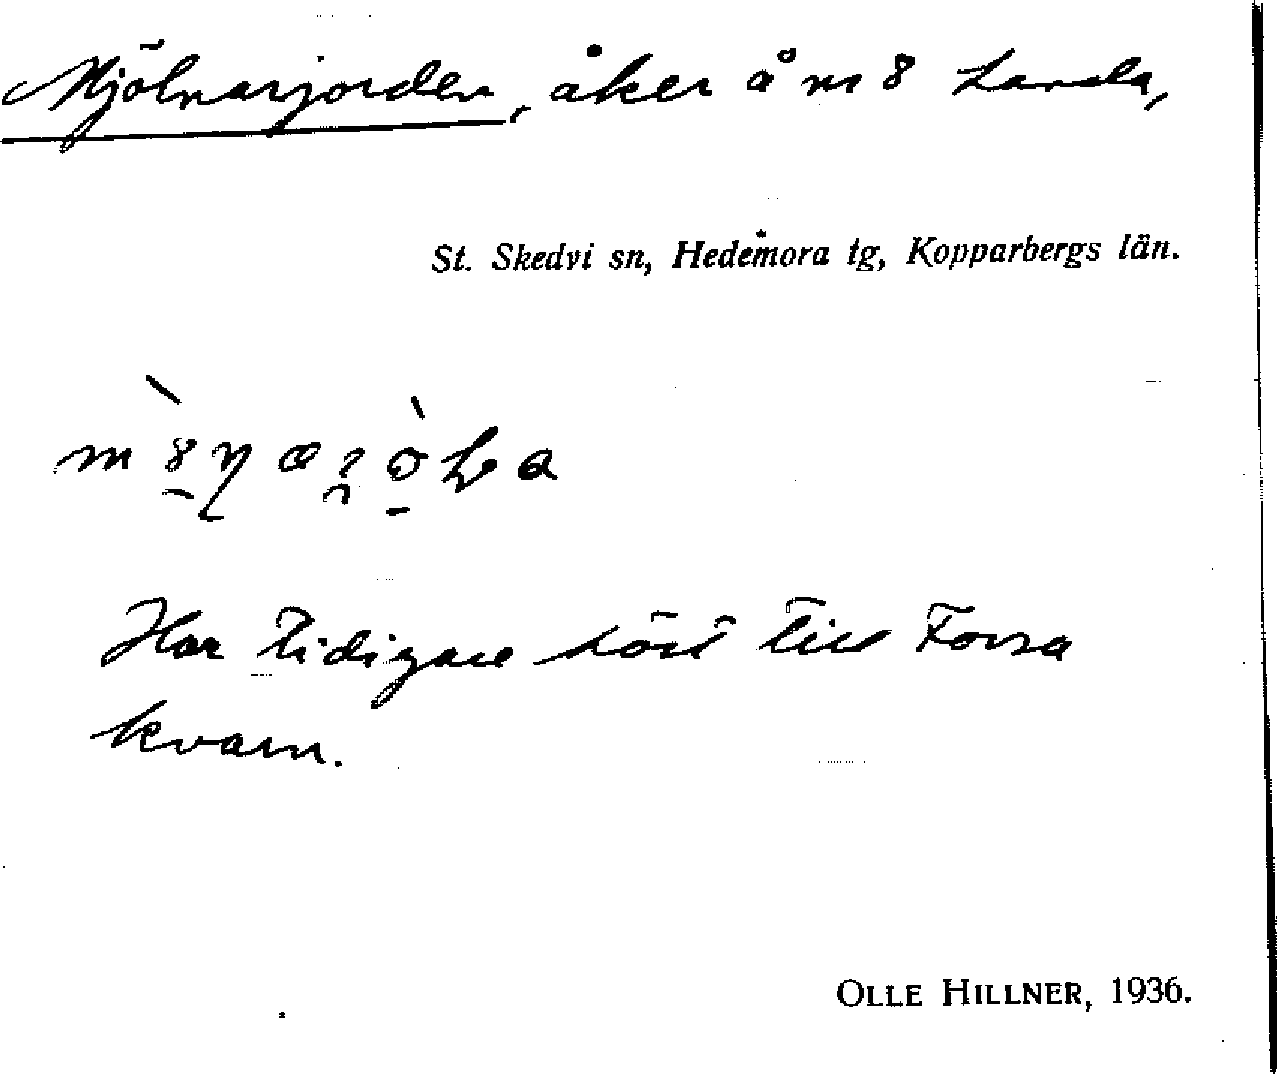 Mjölnarjorden, åker å nr 8 Landa,
St. Skedvi sn, Hedemora tg, Kopparbergs län.
Har tidigare hört till Forsa
kvarn.
OLLE HILLNER, 1936.